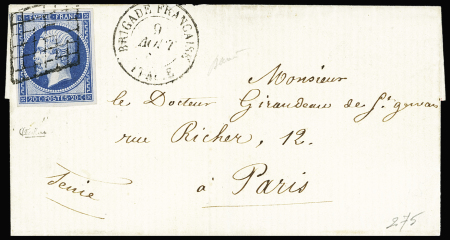 EMPIRE FRANC
20 C POSTES 20 C
BRIGADE FRANÇAISE
9
AOUT
ITALIE
Monsieur
le Docteur Giraudeau de St gervais
rue Richer, 12.
à Paris
275